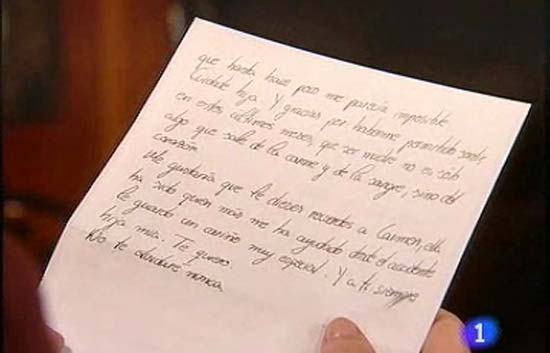 que hasta hace poco me parecía imposible
Cuídate hija. Y gracias por haberme permitido sentir,
en estos últimos meses, que ser madre no es solo
algo que sale de la carne y de la sangre, sino del
corazón.
Me gustaría que le dieses recuerdos a Carmen, ella
ha sido quien más me ha ayudado desde el accidente
le guardo un cariño muy especial. Y a ti siempre
hija mía. Te quiero.
No te olvidaré nunca.
1